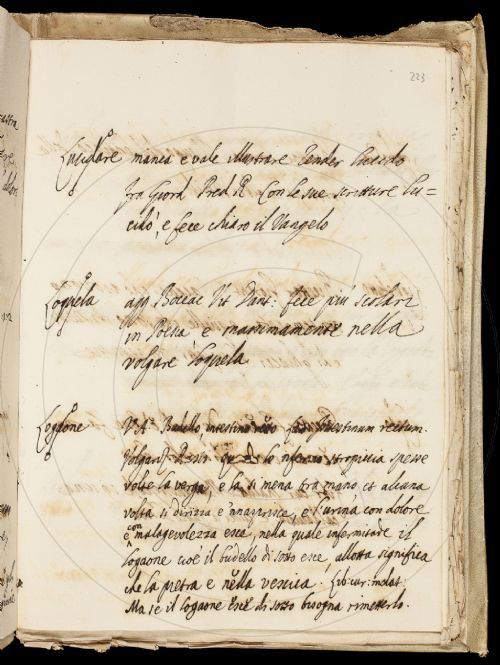 223
Lucidare manca e vale Illustrare Render lucido
fra Giord Pred R Con le sue scritture lu=
cidò, e fece chiaro il Vangelo
Loquela agg Boccac Vit Dant: fece più scolari
in Poesia e massimamente nella
volgare loquela
Logaone V.A. Budello, intestino retto Intestinum rectum.
volgariz Rasis la infermo stropiccia spesse
volte la verga, e la si mena tra mano et alcuna
volta si dirizza e innasprisce, e l'urina con dolore
e con malagevolezza esce, nella quale infermitade il
logaone cioè il budello di sotto esce, allotta significa
che la pietra è nella vescica. Lib cur: malat:
Ma se il logaone esce di sotto bisogna rimetterlo.